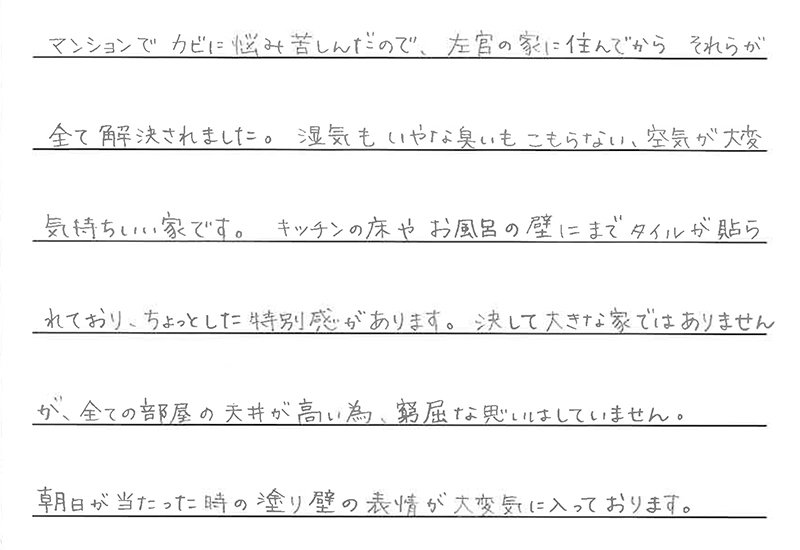 マンションで カビに悩み苦しんだので、左官の家に住んでから それらが
全て解決されました。 湿気も いやな臭いも こもらない、空気が大変
気持ちいい家です。 キッチンの床や お風呂の壁にまでタイルが貼ら
れており、ちょっとした特別感があります。 決して大きな家ではありません
が、全ての部屋の天井が高い為、窮屈な思いはしていません。
朝日が当たった時の塗り壁の表情が大変気に入っております。